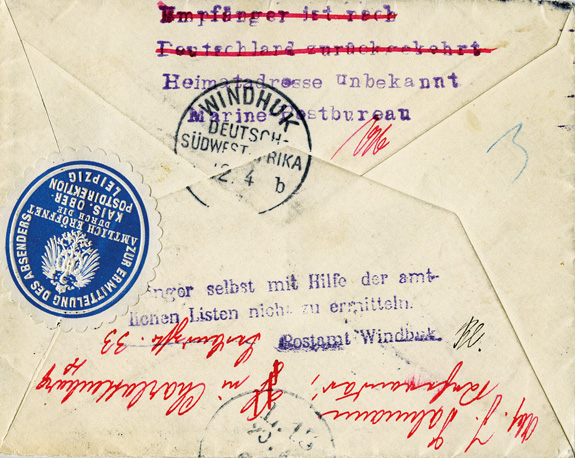 Empfänger ist nach
Deutschland zurückgekehrt
Heimatadresse unbekannt
Marine Postbureau
WINDHUK
DEUTSCH-
SÜDWEST RIKA
2.4 b
ZUR ERMITTELUNG DES ABSENDERS
AMTLICH ERÖFFNET
DURCH DIE
KAIS. OBER-
POSTDIREKTION
LEIPZIG
nger selbst mit Hilfe der amt-
lichen Listen nicht zu ermitteln.
Postamt Windhuk.
33
Abs. J.
in Charlottenburg